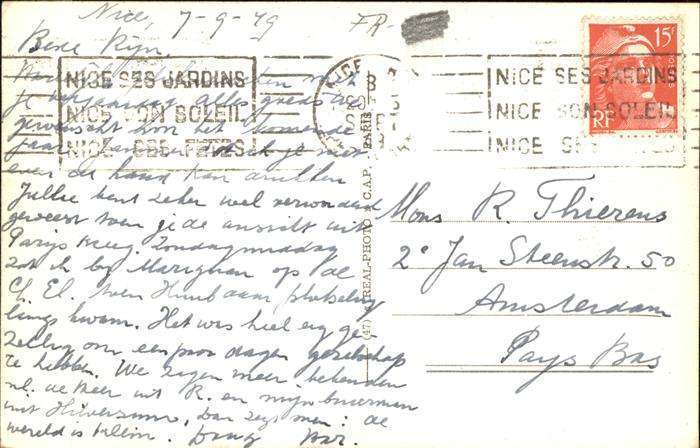 Nice, 7-9-49
FR-
Beste Rijn,
je verjaardag. Alles goeds
gewenscht voor het komende
jaar.
over de hand kan drukken
Jullie bent zeker wel verwonderd
geweest toen je de ansicht uit
Parijs kreeg. Zondagmiddag
zat ik bij Marignan op de
Ch. El. toen Humb aan plotseling
lings kwam. Het was heel erg ge-
zellig om een paar dagen gezelschap
te hebben. We zagen meer bekenden
nl. de Heer uit R. en mijn buurman
uit Hilversum. Dan zegt men: de
wereld is klein. Daag
NICE SES JARDINS
NICE SON SOLEIL
NICE SES FÊTES
NICE
NICE SES JARDINS
NICE SON SOLEIL
NICE SES
15F
RF
(47) REAL-PHOTO C.A.P. PARIS
Mons R. Thierens
2e Jan Steenstr. 50
Amsterdam
Pays Bas